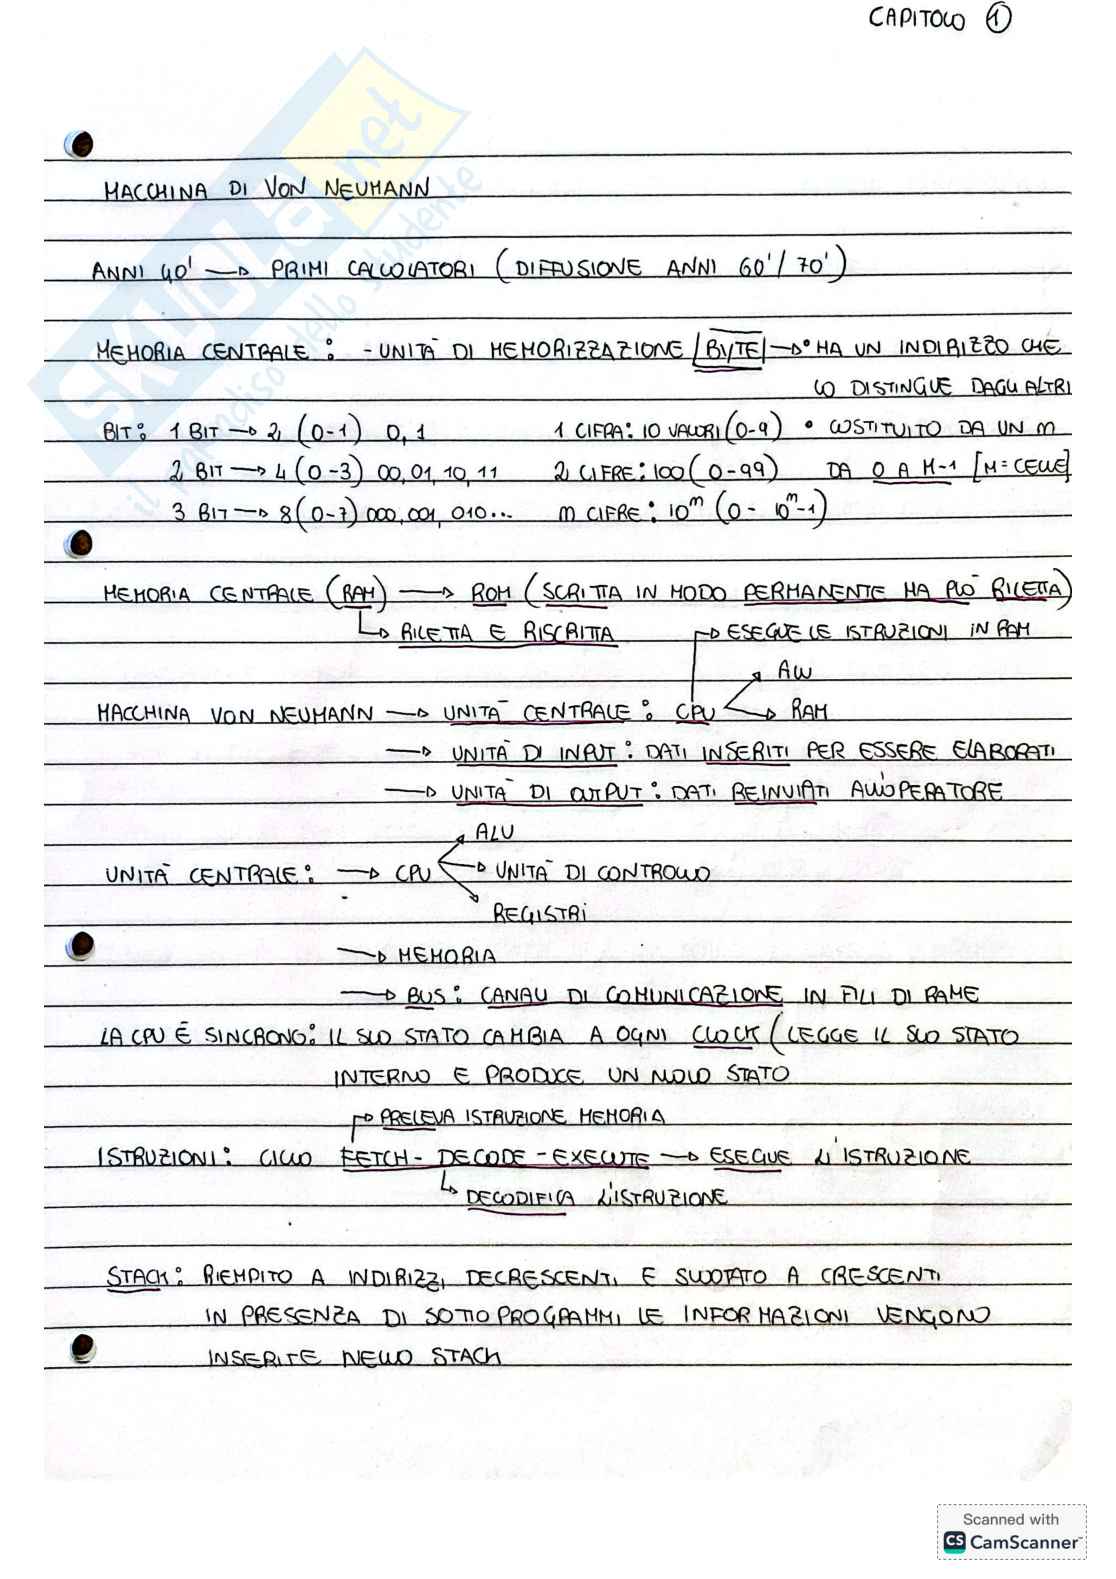 CAPITOLO 1
MACCHINA DI VON NEUMANN
ANNI 40' → PRIMI CALCOLATORI (DIFFUSIONE ANNI 60'/70')
MEMORIA CENTRALE: - UNITÀ DI MEMORIZZAZIONE |BYTE| → • HA UN INDIRIZZO CHE
LO DISTINGUE DAGLI ALTRI
BIT: 1 BIT → 2 (0-1) 0,1 1 CIFRA: 10 VALORI (0-9) • COSTITUITO DA UN M
2 BIT → 4 (0-3) 00,01,10,11 2 CIFRE: 100 (0-99) DA 0 A M-1 [M=CELLE]
3 BIT → 8 (0-7) 000,001,010... m CIFRE: 10^m (0 - 10^m-1)
MEMORIA CENTRALE (RAM) → ROM (SCRITTA IN MODO PERMANENTE MA PUÒ RILETTA)
RILETTA E RISCRITTA
ESEGUE LE ISTRUZIONI IN RAM
ALU
MACCHINA VON NEUMANN → UNITÀ CENTRALE: CPU → RAM
→ UNITÀ DI INPUT: DATI INSERITI PER ESSERE ELABORATI
→ UNITÀ DI OUTPUT: DATI REINVIATI ALL'OPERATORE
ALU
UNITÀ CENTRALE: → CPU → UNITÀ DI CONTROLLO
REGISTRI
→ MEMORIA
→ BUS: CANALI DI COMUNICAZIONE IN FILI DI RAME
LA CPU È SINCRONO: IL SUO STATO CAMBIA A OGNI CLOCK (LEGGE IL SUO STATO
INTERNO E PRODUCE UN NUOVO STATO
PRELEVA ISTRUZIONE MEMORIA
ISTRUZIONI: CICLO FETCH - DECODE - EXECUTE → ESEGUE L'ISTRUZIONE
DECODIFICA L'ISTRUZIONE
STACK: RIEMPITO A INDIRIZZI DECRESCENTI E SVUOTATO A CRESCENTI
IN PRESENZA DI SOTTOPROGRAMMI LE INFORMAZIONI VENGONO
INSERITE NELLO STACK
SKUOLA.net
il paradiso dello studente
Scanned with
CS CamScanner